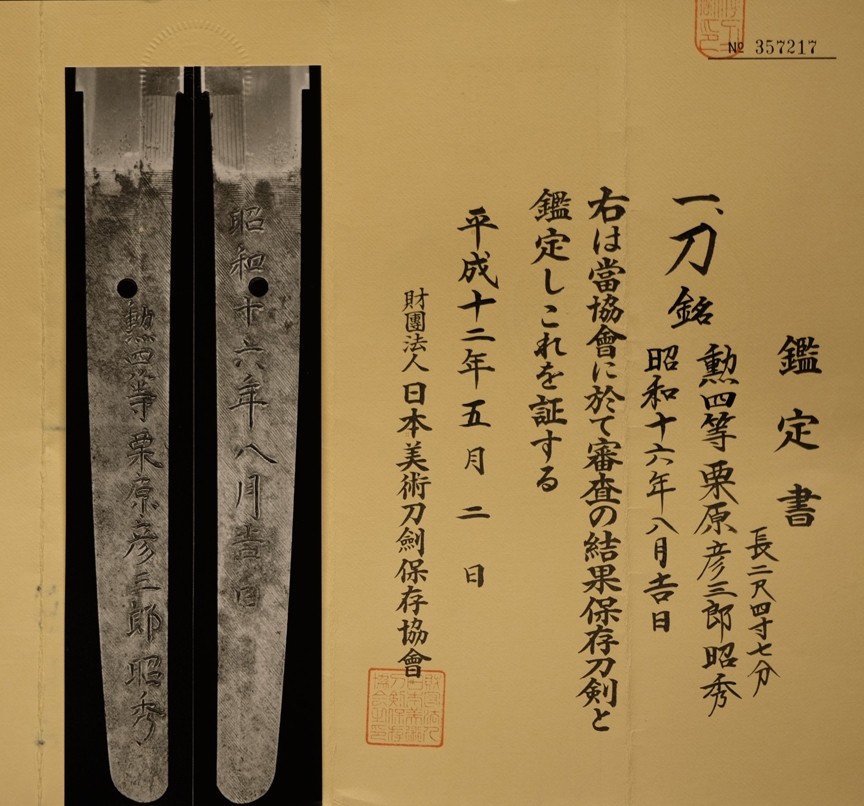 № 357217
鑑定書
長二尺四寸七分
一、刀 銘 勲四等栗原彦三郎昭秀
昭和十六年八月吉日
右は當協會に於て審査の結果保存刀剣と
鑑定しこれを証する
平成十二年五月二日
財團法人 日本美術刀劍保存協會
昭和十六年八月吉日
勲四等栗原彦三郎昭秀